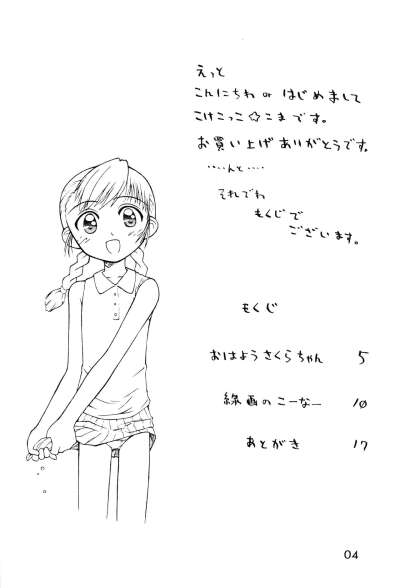 えっと
こんにちわ or はじめまして
こけこっこ☆こまです。
お買い上げありがとうです。
……んと……
それでわ
もくじで
ございます。
もくじ
おはようさくらちゃん 5
線画のこーなー 10
あとがき 17
04